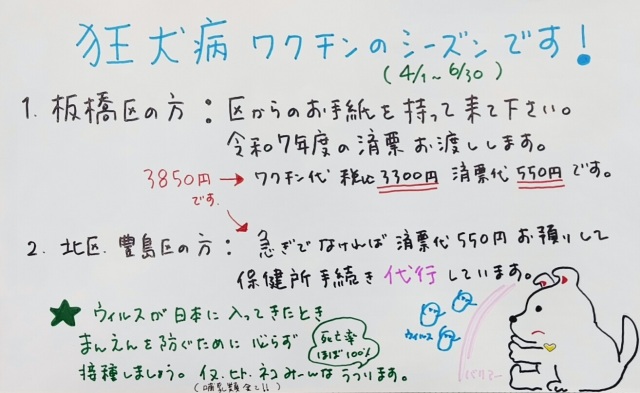 狂犬病ワクチンのシーズンです!
(4/1~6/30)
1. 板橋区の方:区からのお手紙を持って来て下さい。
令和7年度の済票お渡しします。
3850円です。→ワクチン代 税込3300円 済票代550円です。
2. 北区、豊島区の方:急ぎでなければ済票代550円お預りして
保健所手続き代行しています。
★ウィルスが日本に入ってきたとき
まんえんを防ぐために必らず
接種しましょう。イヌ、ヒト、ネコみーんなうつります。
(哺乳類全て!!)
死亡率
ほぼ100%
ウィルス
バリアー